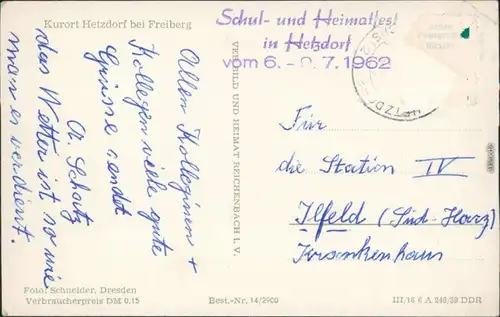 Kurort Hetzdorf bei Freiberg
Schul- und Heimatfest
in Hetzdorf
vom 6.- 9.7.1962
Allen Kolleginnen +
Kollegen viele gute
Grüsse sendet
A. Schatz
das Wetter ist so wie
man es verdient.
VERL BILD UND HEIMAT REICHENBACH I. V.
HETZD
Für
die Station IV
Ilfeld (Süd-Harz)
Krankenhaus
Foto: Schneider, Dresden
Verbraucherpreis DM 0.15
Best.-Nr. 14/2900
III/18 6 A 246/59 DDR